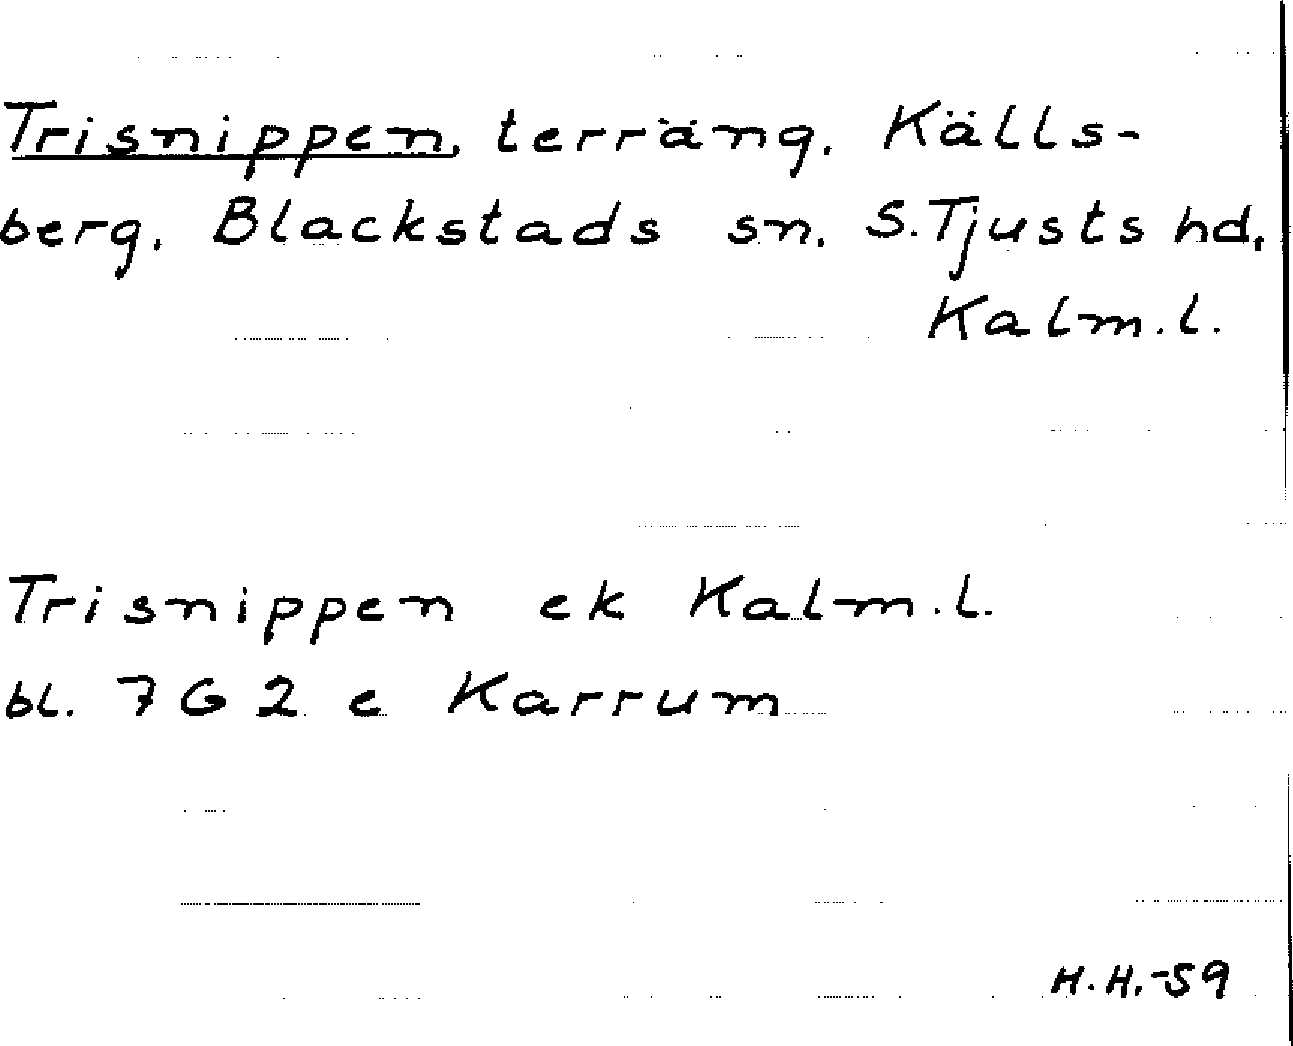 Trisnippen, terräng. Källs-
berg. Blackstads sn. S.Tjusts hd.
Kalm.l.
Trisnippen ek Kalm.l.
bl. 7 G 2 e Karrum
H.H.-59